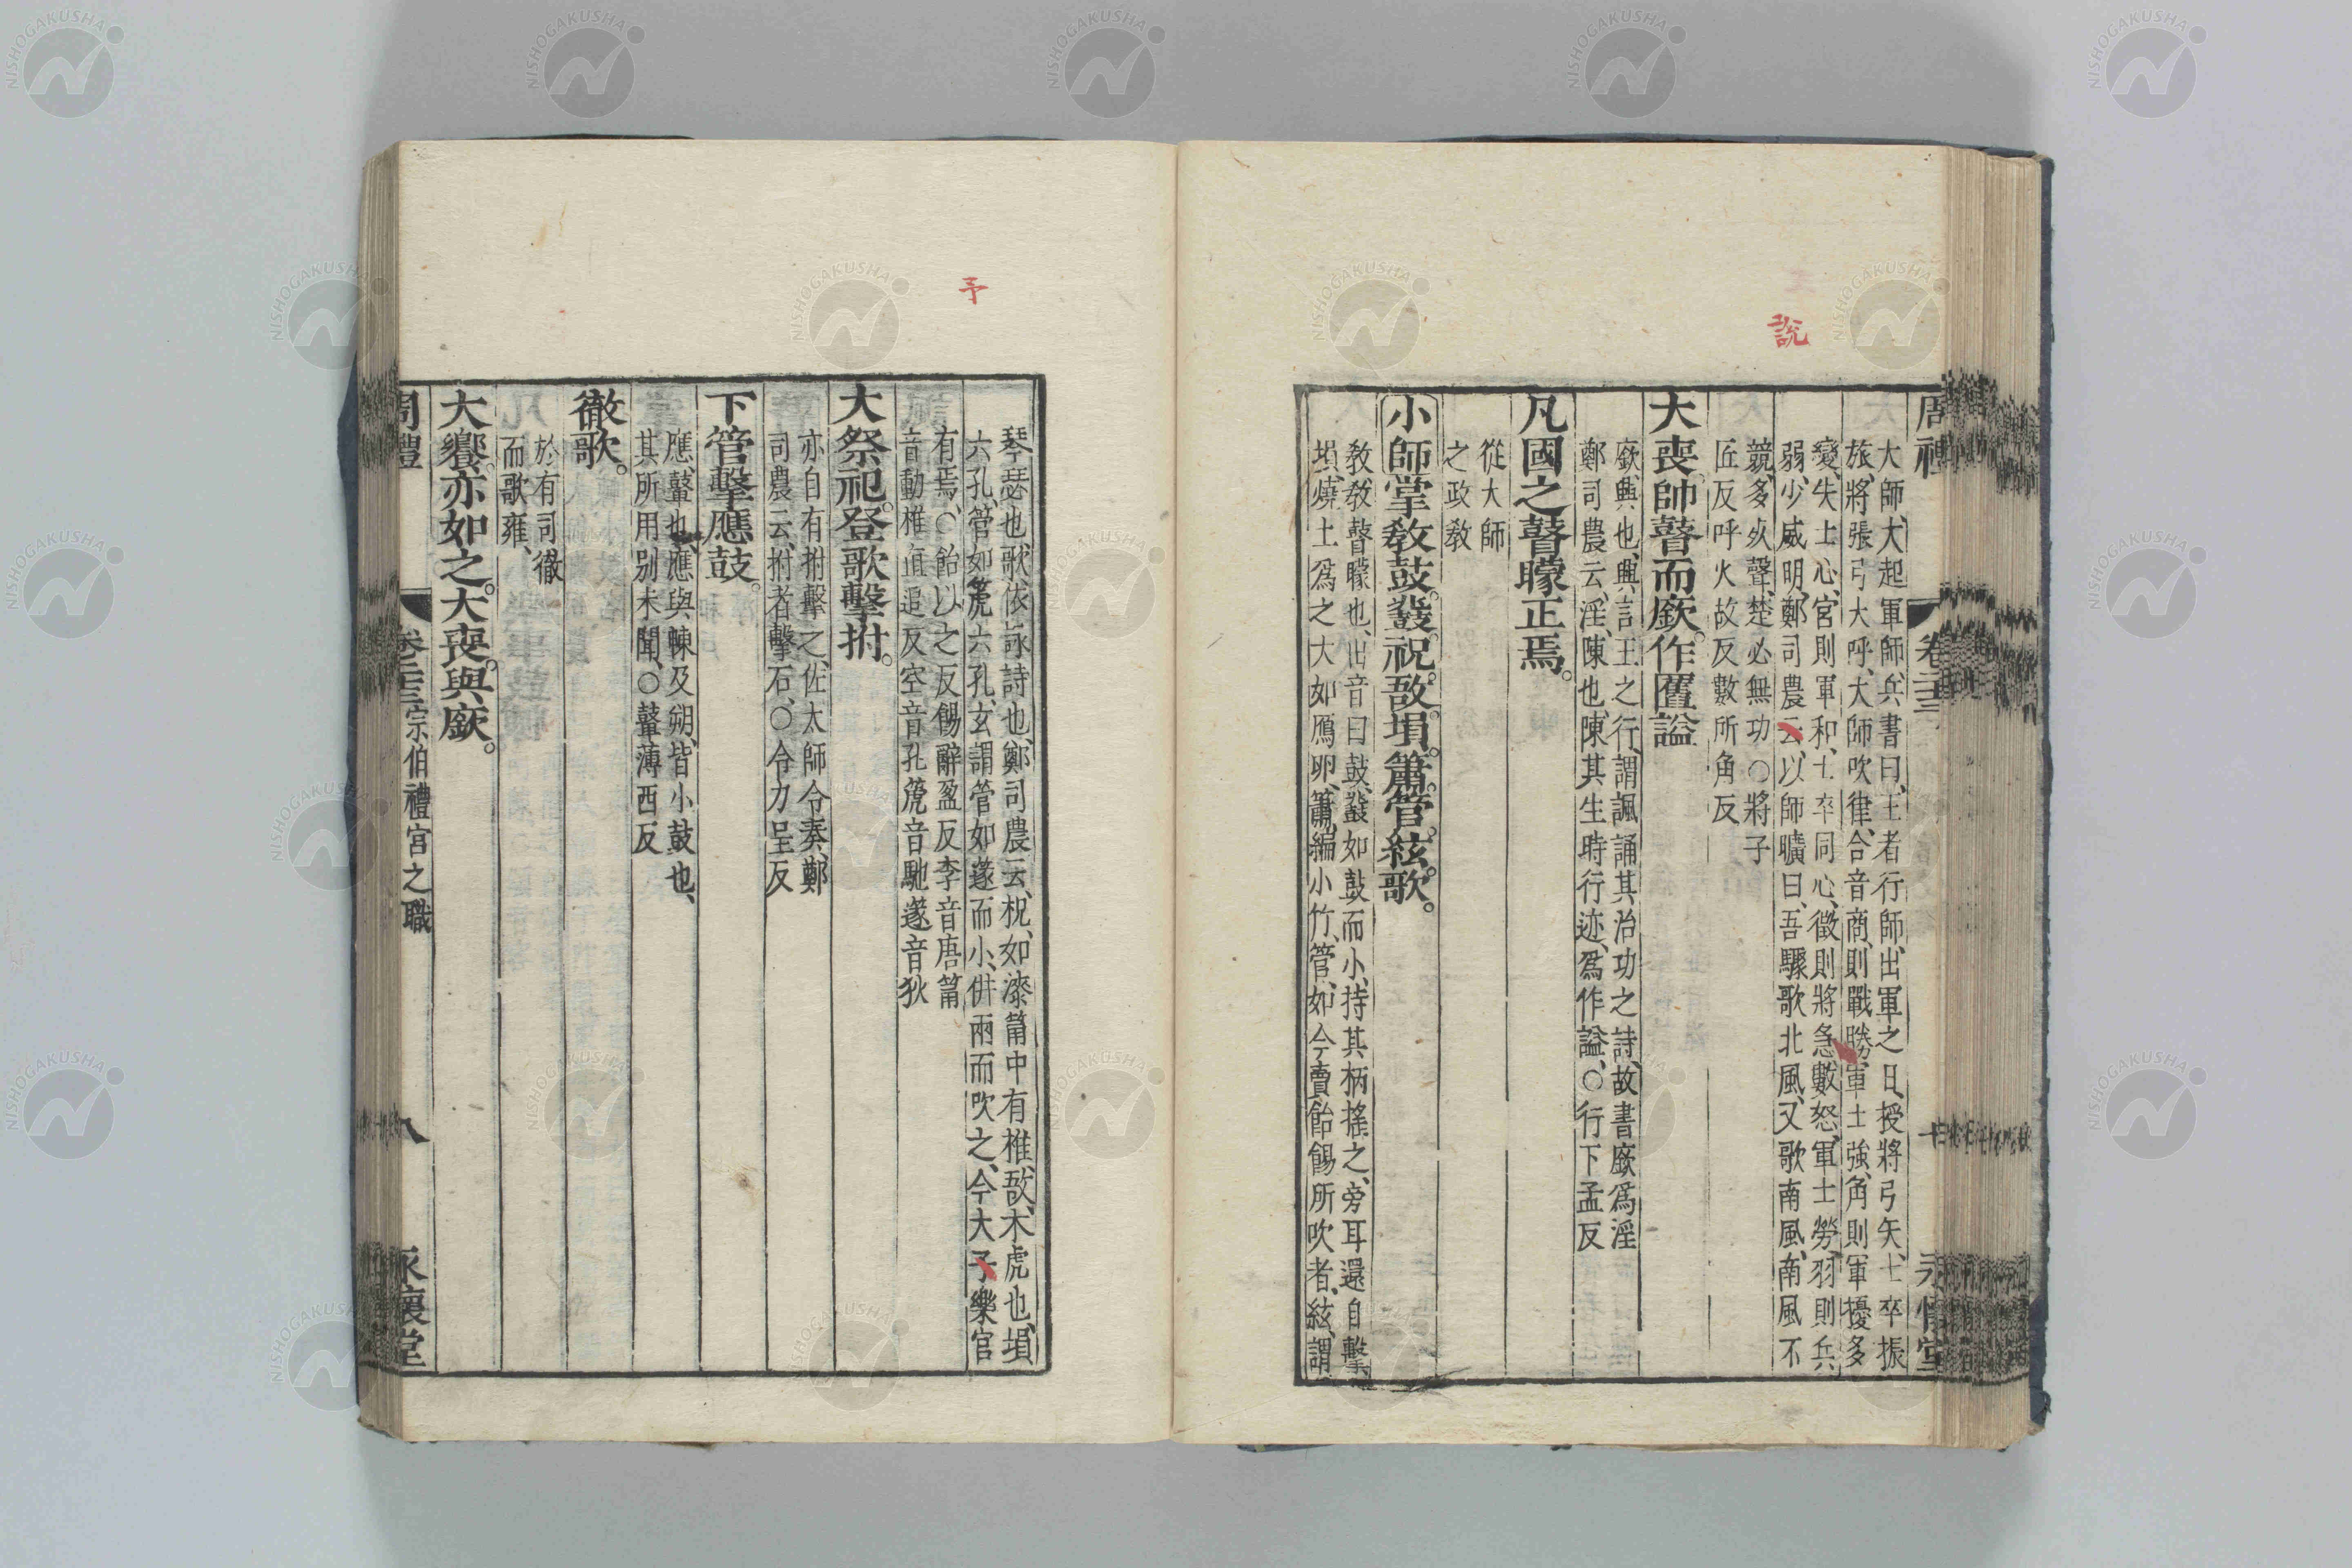 說
周禮
卷二十三
永懷堂
大師、大起軍師、兵書曰、王者行師、出軍之日、授將弓矢、士卒振
旅、將張弓大呼、大師吹律、合音商、則戰勝、軍士強、角則軍擾多
變、失士心、宮則軍和、士卒同心、徵則將急數怒、軍士勞、羽則兵
弱、少威明、鄭司農云、以師曠曰、吾驟歌北風、又歌南風、南風不
競、多死聲、楚必無功○將子
匠反呼火故反數所角反
大喪。帥瞽而廞。作匶謚
廞、興也、興言王之行、謂諷誦其治功之詩、故書廞爲淫
鄭司農云、淫、陳也、陳其生時行迹、爲作謚、○行下孟反
凡國之瞽矇正焉。
從大師
之政教
小師掌教鼓。鼗。柷。敔。塤。簫。管。絃。歌。
教教瞽矇也、出音曰鼓、鼗如鼓而小、持其柄搖之、旁耳還自擊
塤、燒土爲之大如鴈卵、簫、編小竹、管、如今賣飴餳所吹者、絃、謂
予
琴瑟也、歌、依詠詩也、鄭司農云、柷、如漆筩中有椎、敔、木虎也、塤
六孔、管如篪六孔、玄謂管如篴而小、併兩而吹之、今大予樂官
有焉、○飴以之反餳辭盈反李音唐筩
音動椎直追反空音孔篪音馳篴音狄
大祭祀。登歌擊拊。
亦自有拊擊之、佐太師令奏、鄭
司農云、拊者擊石、○令力呈反
下管擊應鼓。
應、鼙也、應與朄及朔、皆小鼓也、
其所用别未聞、○鼙薄西反
徹歌。
於有司徹
而歌雍、
大饗。亦如之。大喪。與、廞。
周禮
卷二十三 宗伯禮官之職
八
永懷堂